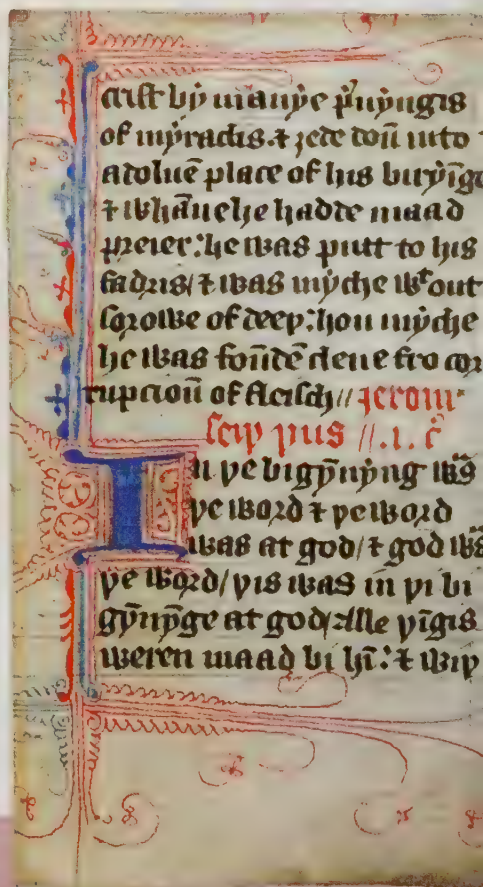 crist bẏ manẏe p̉uẏngis
of mẏraclis. ⁊ ȝede doū into
a doluē place of his buryīge
⁊ whāne he hadde maad
preier: he was putt to his
fadris/ ⁊ was mẏche wᵗ out
sorowe of deeþ: hou mẏche
he was foūdē clene fro cor
rupcioū of fleisch // Jerom
seiþ þus //. 1. c̉
In þe bigẏ̄nẏng was
þe word ⁊ þe word
was at god/ ⁊ god was
þe word/ þis was in þi bi
gẏ̄nẏ̄ge at god/ alle þīgis
weren maad bi hī: ⁊ wiþ